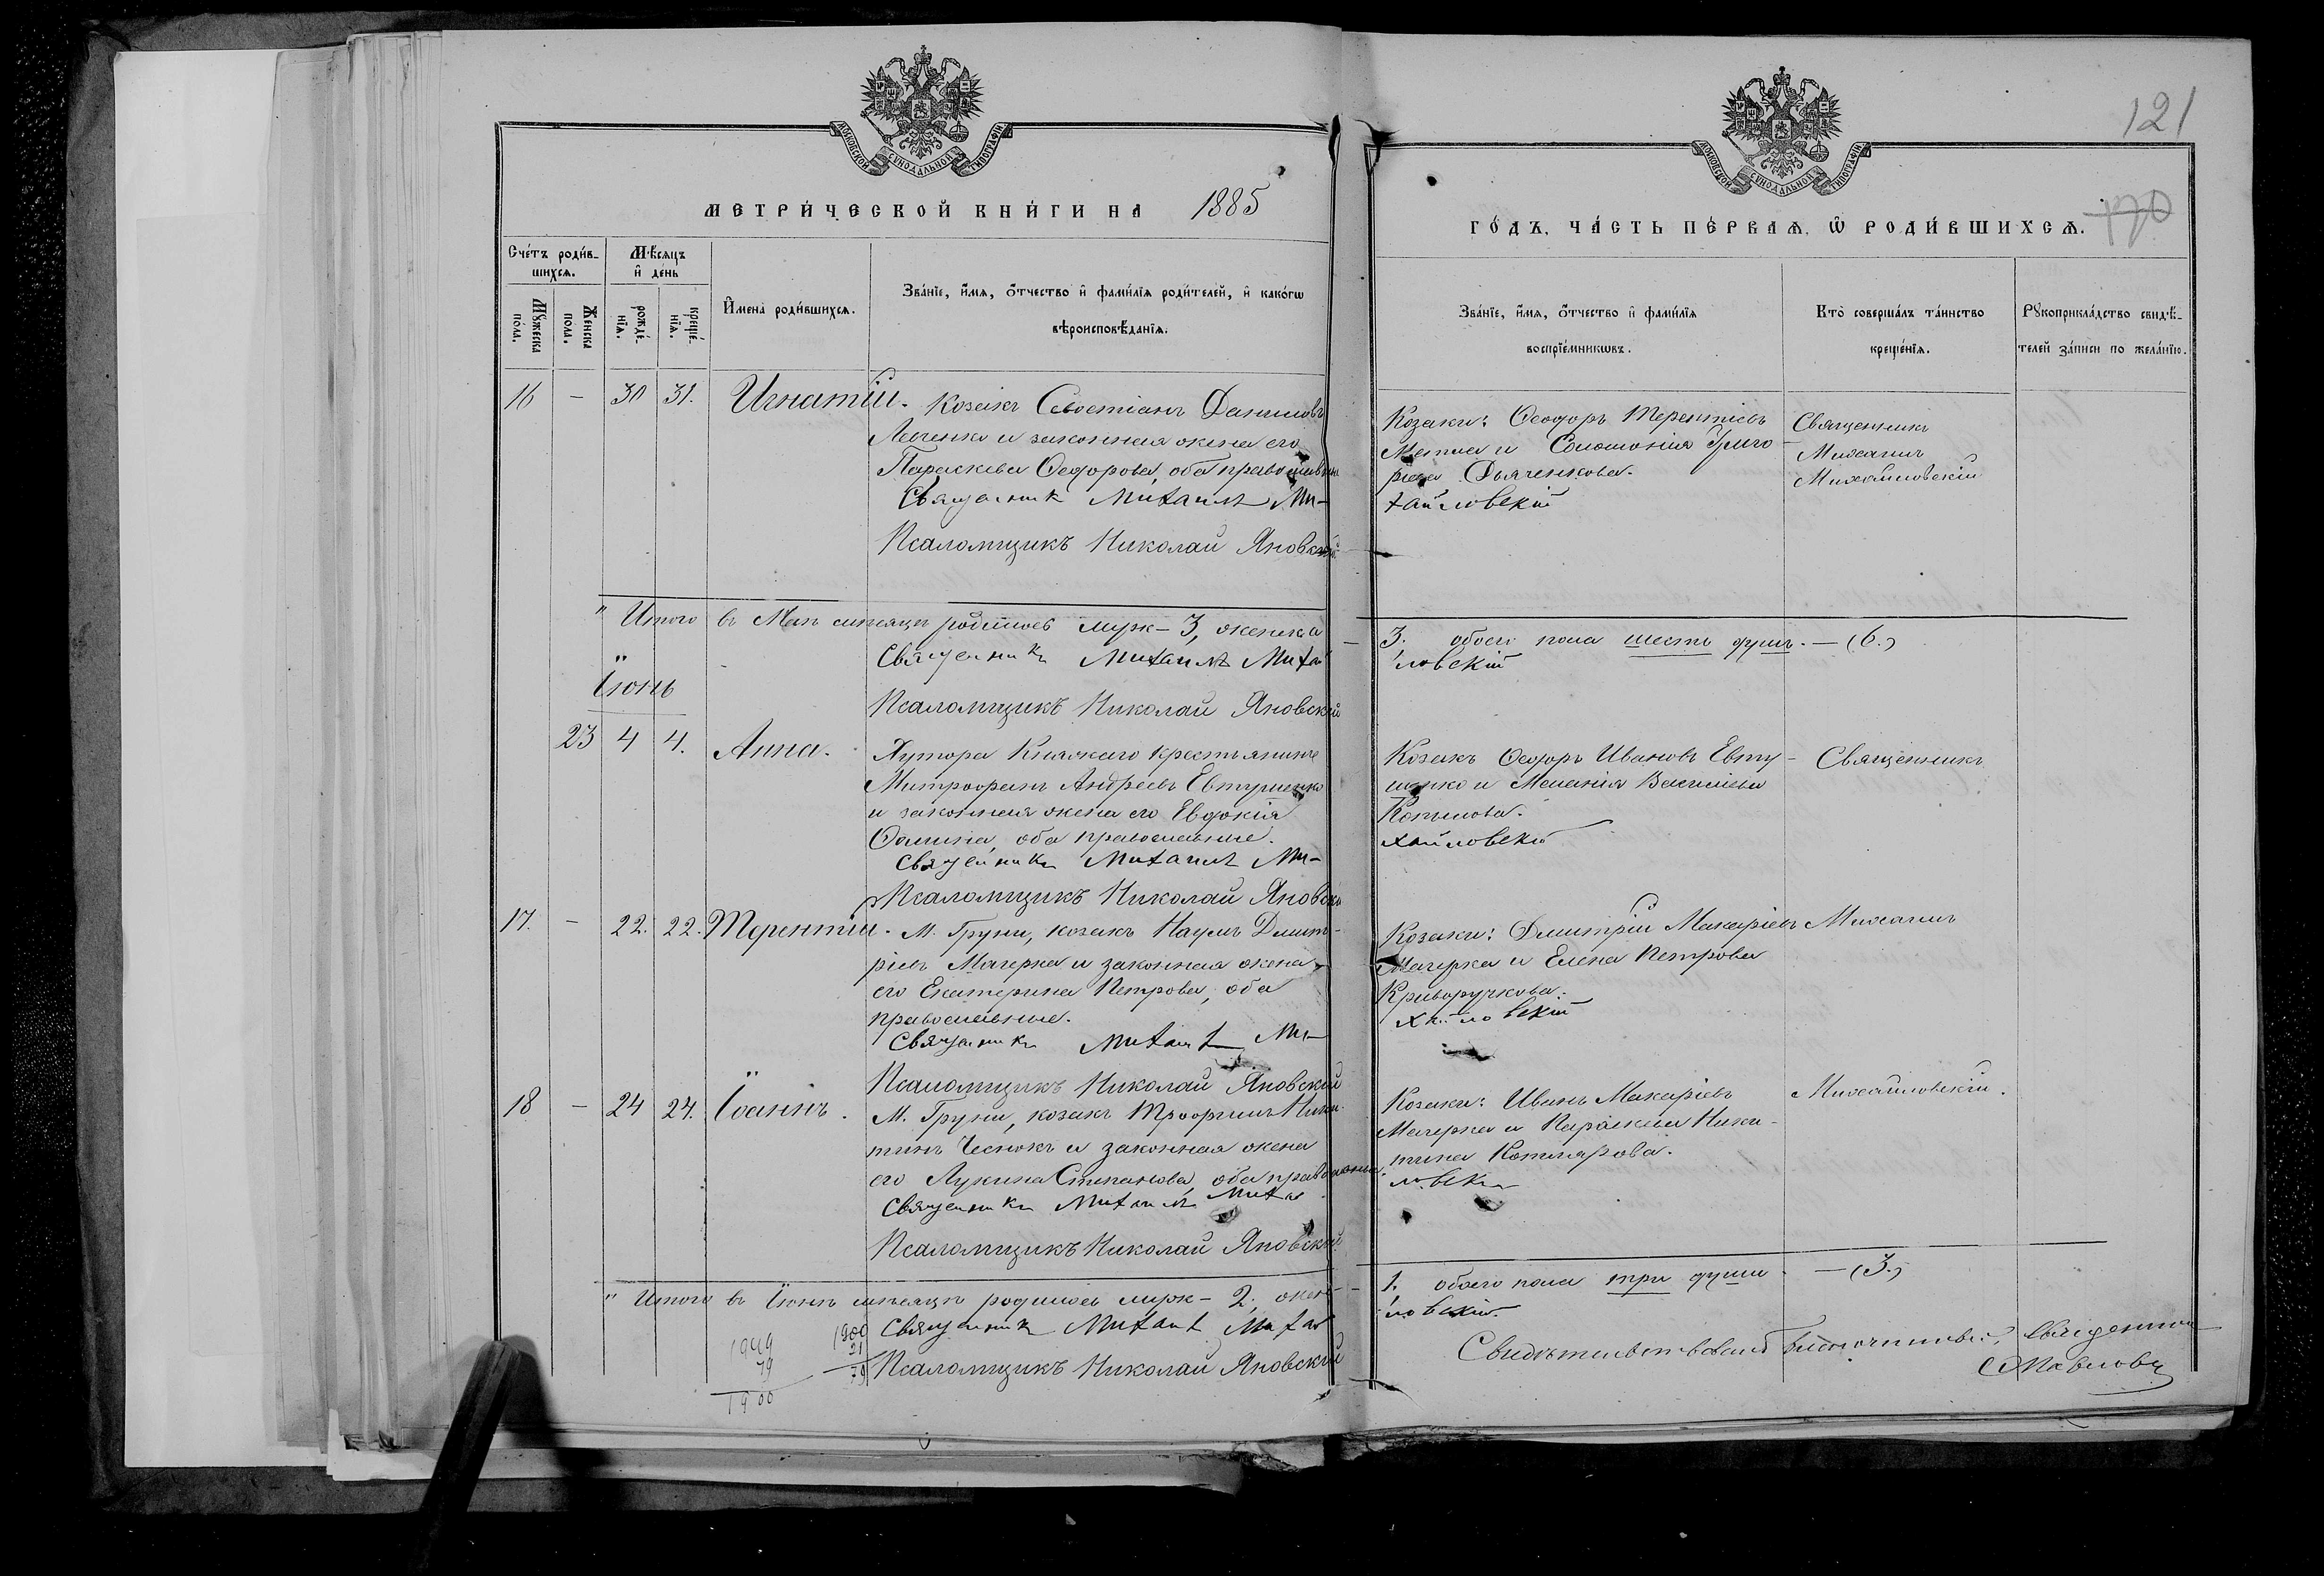 121
МОСКОВСКОЙ СУНОДАЛЬНОЙ ТИПОГРАФІИ
МОСКОВСКОЙ СУНОДАЛЬНОЙ ТИПОГРАФІИ
МЕТРИ́ЧЕСКОЙ КНИ́ГИ НА 1885
ГО́ДЪ, ЧА́СТЬ ПЕ́РВАЯ, Ѡ РОДИ́ВШИХСЯ.
170
Сче́тъ роди́в-
шихся.
Мѣ́сяцъ
и҆ де́нь
Мꙋ́жеска
по́ла.
Же́нска
по́ла.
рожде́-
нїя.
креще́-
нїя.
И҆мена̀ роди́вшихся.
Зва́нїе, и҆́мя, о҆́тчество и҆ фами́лїя роди́телей, и҆ како́гѡ
вѣроисповѣ́данїя.
Зва́нїе, и҆́мя, о҆́тчество и҆ фами́лїя
воспрїе́мникѡвъ.
Кто̀ соверша́лъ та́инство
креще́нїя.
Рꙋкоприкла́дство свидѣ́-
телей за́писи по жела́нїю.
16 — 30 31. Игнатій. Козакъ Севостіанъ Даниловъ
и законная жена его
Параскева Ѳеодорова, оба православные
Священникъ Михаилъ Ми-
Псаломщикъ Николай Яновскій
Козаки: Ѳеодоръ Терентіевъ
и Соломонія Григо-
рьева Дьяченкова.
хайловскій
Священникъ
Михаилъ
Михайловскій
" Итого въ Маѣ мѣсяцѣ родилось муж – 3, женска –
3. обоего пола шесть душъ. — (6.)
Священникъ Михаилъ Михай
ловскій
Псаломщикъ Николай Яновскій
Іюнь
23 4 4. Анна. Хутора Княжаго крестьянинъ
Митрофанъ Андреевъ Евтушенко
и законная жена его Евдокія
Ѳомина, оба православные.
Священникъ Михаилъ Ми-
Псаломщикъ Николай Яновскій
Козакъ Ѳеодоръ Ивановъ Евту-
шенко и Меланія Василіева
хайловскій
Священникъ
17. — 22. 22. Терентій. М. Груни, козакъ Наумъ Димит-
ріевъ Мачерка и законная жена
его Екатерина Петрова, оба
православные.
Священникъ Михаилъ Ми-
Псаломщикъ Николай Яновскій
Козаки: Димитрій Макаріевъ
Мачерка и Елена Петрова
Криворучкова.
хайловскій
Михаилъ
18 — 24 24. Іоаннъ. М. Груни, козакъ Трофимъ Ники-
тинъ Чеснокъ и законная жена
его Лукина Степанова, оба православные.
Священникъ Михаилъ Михай
Псаломщикъ Николай Яновскій
Козаки: Иванъ Макаріевъ
Мачерка и Параскева Ники-
тина Котлярова.
ловскій
Михайловскій.
" Итого въ Іюнѣ мѣсяцѣ родилось муж – 2, жен –
1. обоего пола три души — (3.)
Священникъ Михаилъ Михай
ловскій
Псаломщикъ Николай Яновскій
Свидѣтельствовалъ Благочинный, Священникъ
Павловъ
1900
21
79
1900